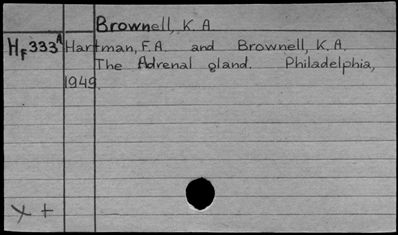 Brownell, K. A
Hf 333A Hartman, F.A. and Brownell, K.A.
The Adrenal gland. Philadelphia,
1949.
X +